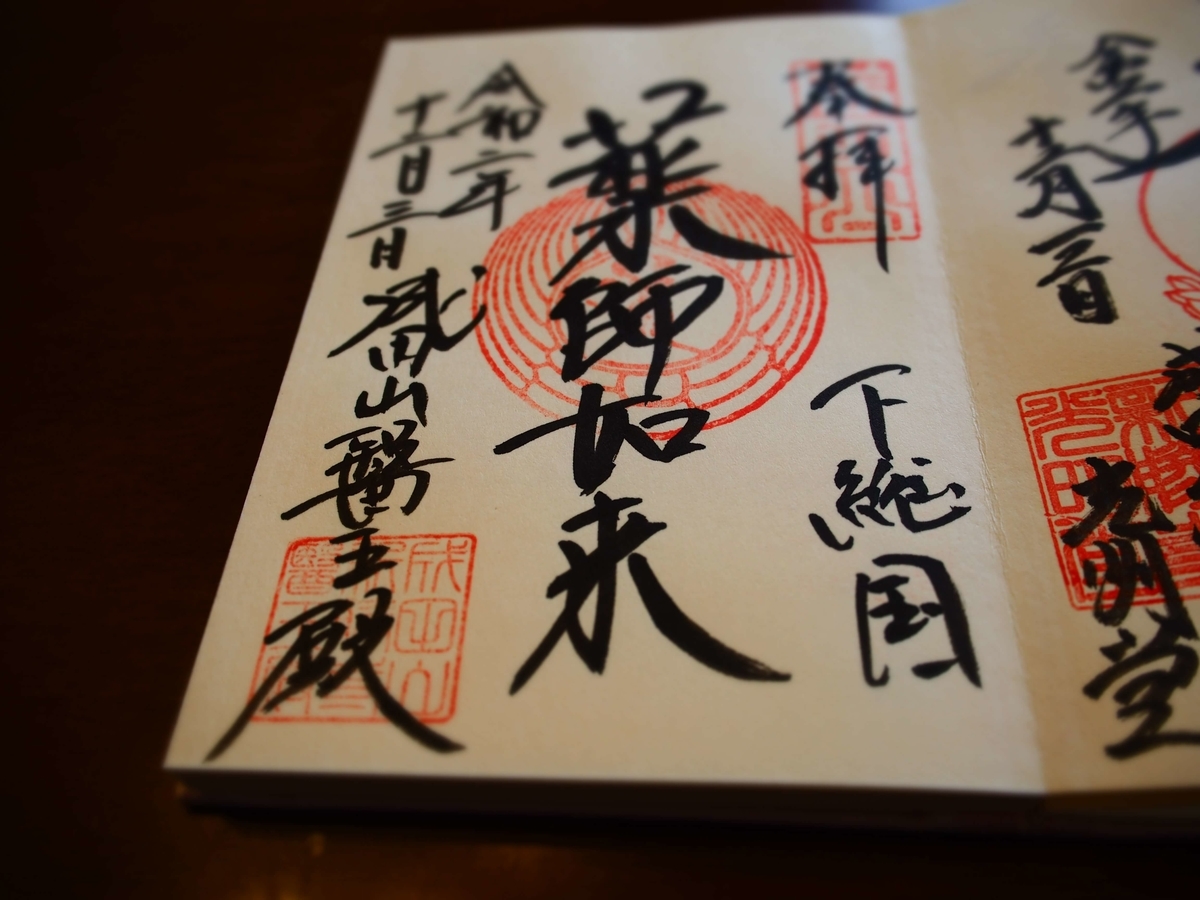 令和二年
十二月三日
光明堂
奉拝
下総国
薬師如来
令和二年
十二月三日
成田山醫王殿
成田山